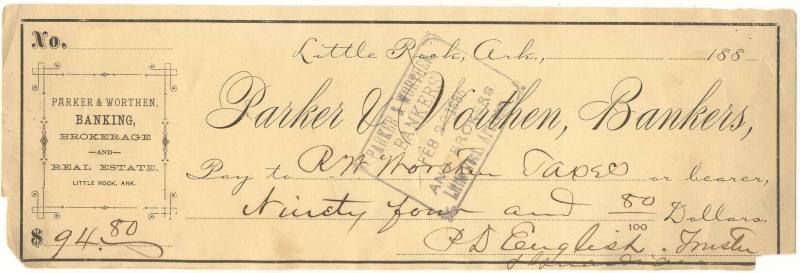 No.
Little Rock, Ark., 188
PARKER & WORTHEN,
BANKING,
BROKERAGE
—AND—
REAL ESTATE.
LITTLE ROCK, ARK.
Parker & Worthen, Bankers,
PARKER & WORTHEN
BANKERS
FEB 2 1885
AND BROKERS
Pay to R W Worthen Taxes or bearer,
Ninety four and 80/100 Dollars.
$ 94.80
P D English. Trustee